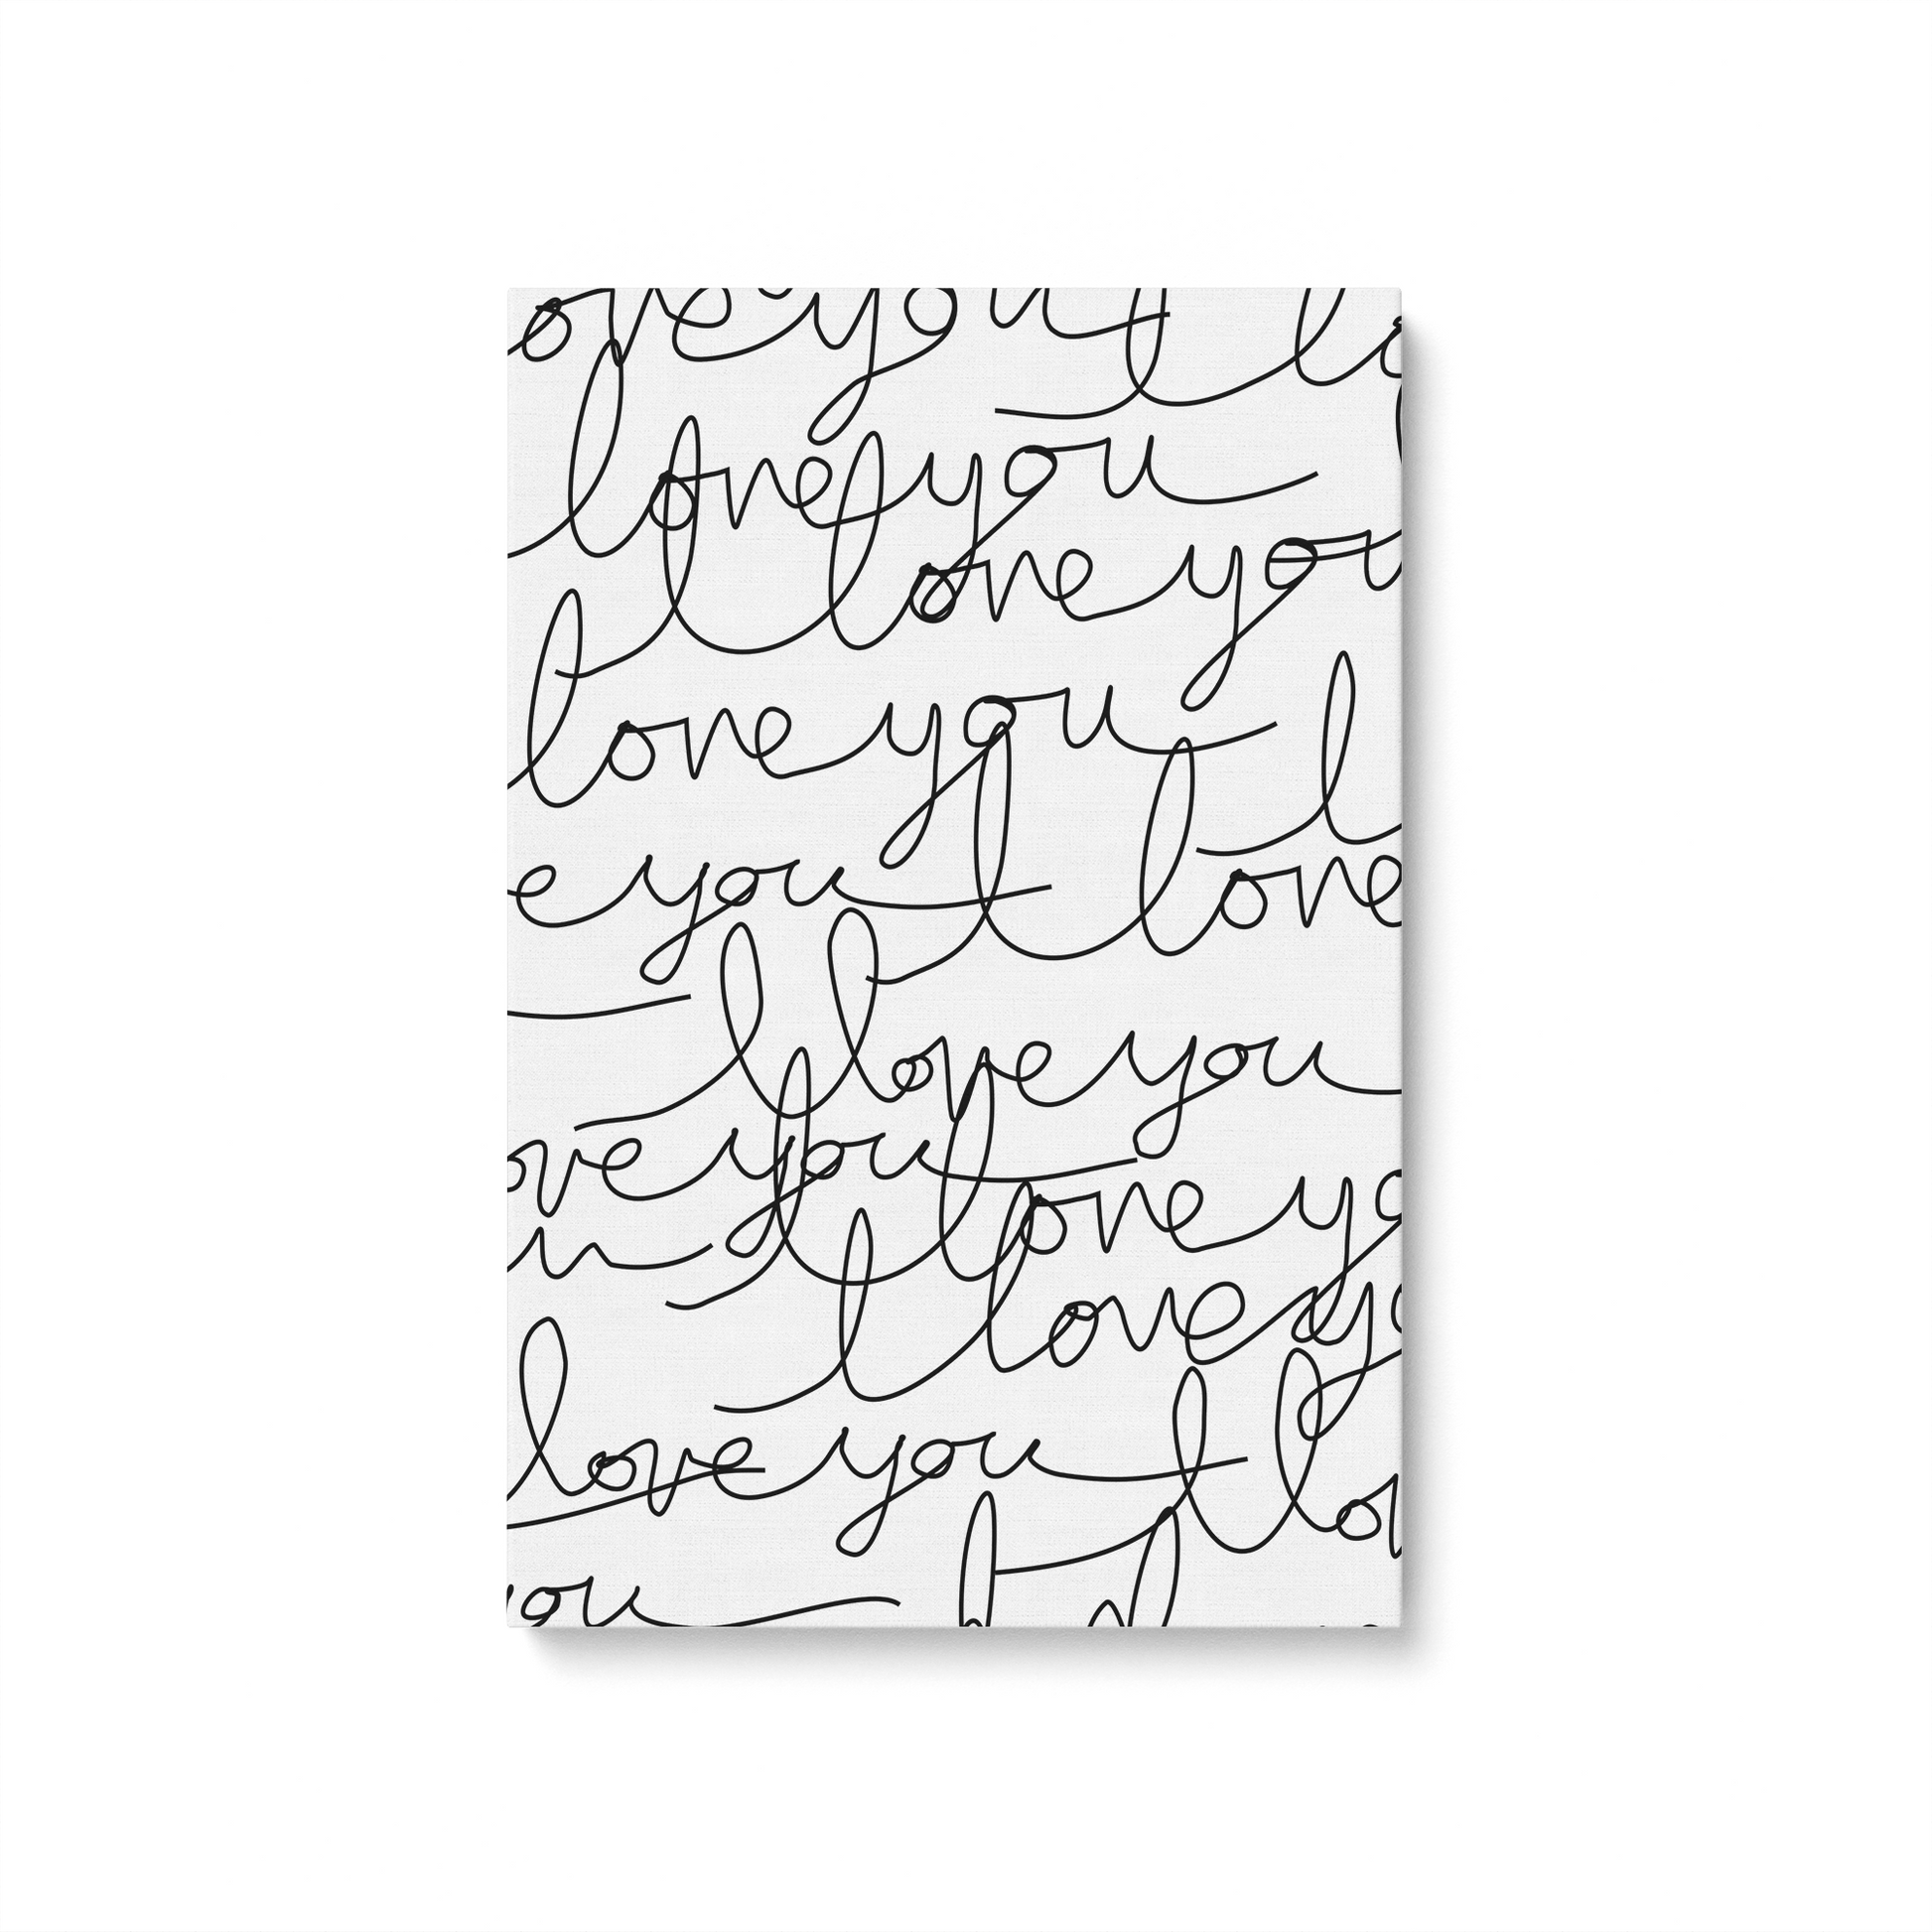 ove you I lo
love you
I love you
love you
I lo
e you I love
I love you
ove you I love yo
u I love yo
love you I lov
you